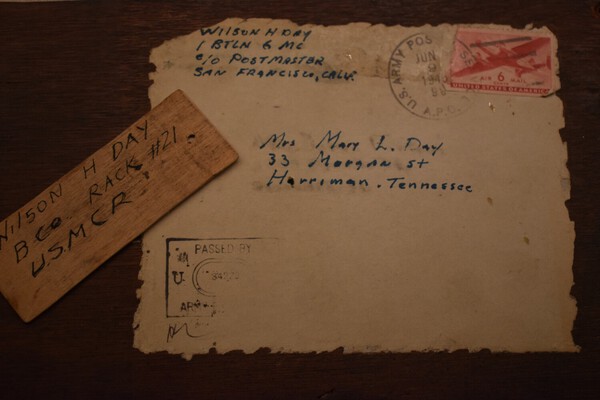 WILSON H DAY
1 BTLN 6 MC
c/o POSTMASTER
SAN FRANCISCO, CALIF.
U.S. ARMY POSTAL
JUN
A.P.O.
AIR 6 MAIL
UNITED STATES OF AMERICA
Mrs Mary L. Day
33 Morgan St
Harriman. Tennessee
WILSON H DAY
B Co RACK #21
U.S.M.C.R.
PASSED BY
U